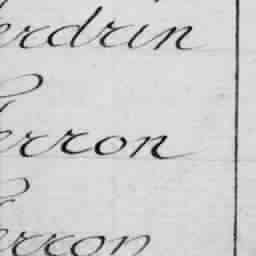 erdrin
erron
erron